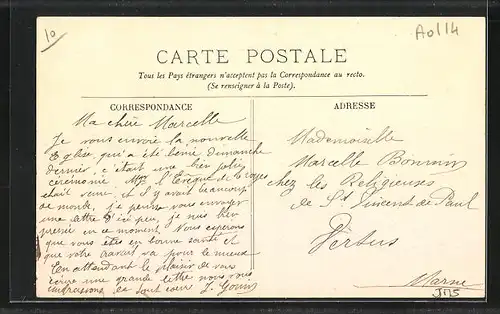 10
A0114
CARTE POSTALE
Tous les Pays étrangers n'acceptent pas la Correspondance au recto.
(Se renseigner à la Poste).
CORRESPONDANCE
Ma chère Marcelle
Je vous envoie la nouvelle
Eglise qui a été bénie dimanche
dernier, c'était une bien jolie
cérémonie Mgr l'Evêque de Troyes
était venu et il y avait beaucoup
de monde, je pense vous envoyer
une lettre d'ici peu, je suis bien
pressée en ce moment. Nous espérons
que vous êtes en bonne santé et
que votre travail va pour le mieux
En attendant le plaisir de vous
écrire une grande lettre nous vous
embrassons de tout cœur J.
ADRESSE
Mademoiselle
Marcelle
chez les Religieuses
de St Vincent de Paul
Vertus
Marne
J115